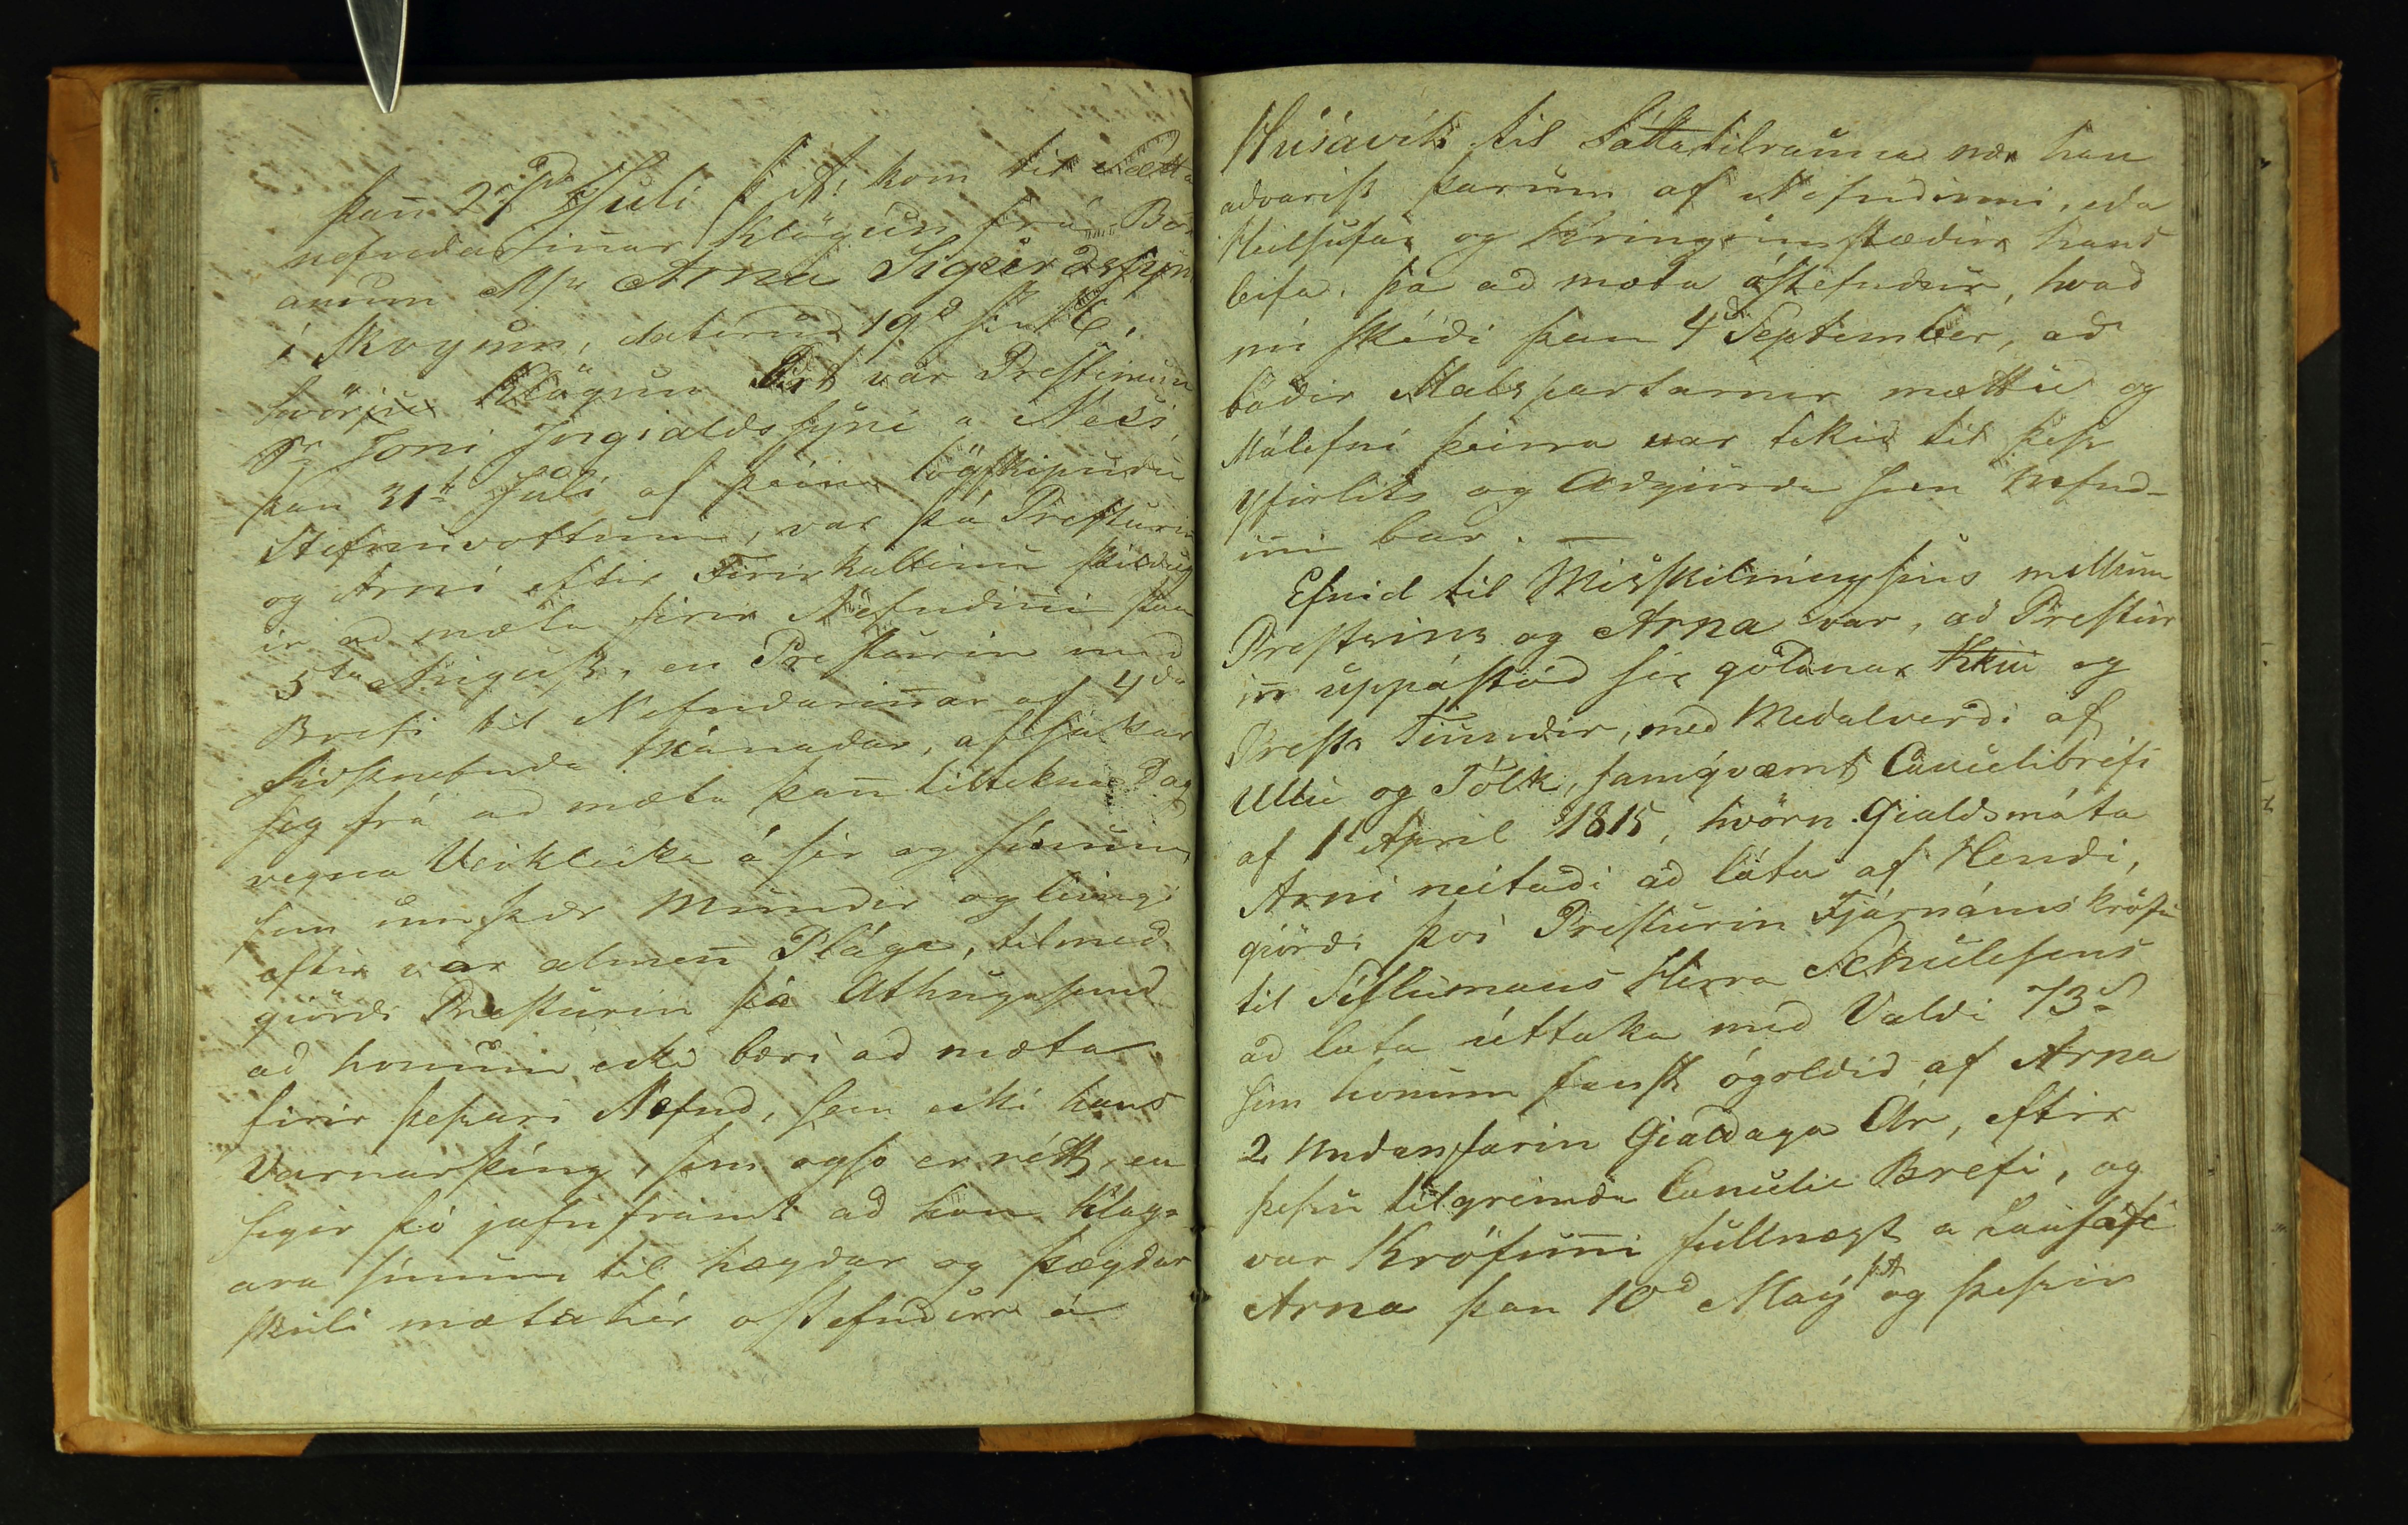 Þan̄ 27da Julí þ: A: kom til Sætta
nefndarin̄ar Klögun frá Bon
anum Mr Arna Sigurdssyni
í Skogum, daterud 19d s. m.
hvörju Klögun birt var Prestinum
Sr Joni Jngialdssyni a Nesi,
þan 31ta Julí af þeim lögskipudu
Stefnuvottum, var þá Presturin
og Arni eftir Firirkallinu skildug
ir ad mæta firir Nefndin̄i þan
5ta August, en Presturin med
Brefi til Nefndarin̄ar af 4da
sidstnefnda Mánadar, afsakar
sig frá ad mæta þan̄ tiltekna Dag
vegna Veikleika á sér og sínum
sem um þær Mundir og leingi
eftir var almen̄ Plága, tilmed
giördi Presturin þá Athugasemd
ad honum ecki bæri ad mæta
firir þessari Nefnd, sem ecki hans
Varnarþíng, sem ogso er rétt, en
segir þó jafnframt ad han Klag-
ara sínum til hægdar og þægdar
skuli mæta hér ostefndur á
Husavík til Sáttatilrauna nær han
advarist þarum af Nefndinni, eda
Heilsufar og Kringumstædir hans
leifa. þá ad mæta óstefndur, hvad
nú skédi þan 4d September, ad
bádir Malspartarner mættu og
Málefni þeirra var tekid til þess
Yfirlits og Adgiörda sem Nefnd-
in̄i bar. —
Efnid til Misskilníngsins millum
Prestsins og Arna var, ad Prestur
in̄ uppástód sér goldnar Kkiu og
Prests Tiundir, med Medalverdi af
Ullu og Tólk, samqvæmt Cancelibréfi
af 1t April 1815, hvörn Gialdsmáta
Arni neitadi ad láta af Hendi,
giördi þvi Presturin Fjárnáms kröfu
til Sislumans Herra Schulesens
ad lata úttaka med Valdi 73s
sem honum fanst ógoldid af Arna
2 undanfarin Gialdaga Ar, eftir
þessu tilgreinda Cancelie Brefi, og
var Kröfun̄i fullnægt a Lausafé
Arna þan 10d Maý þ.A og þessir